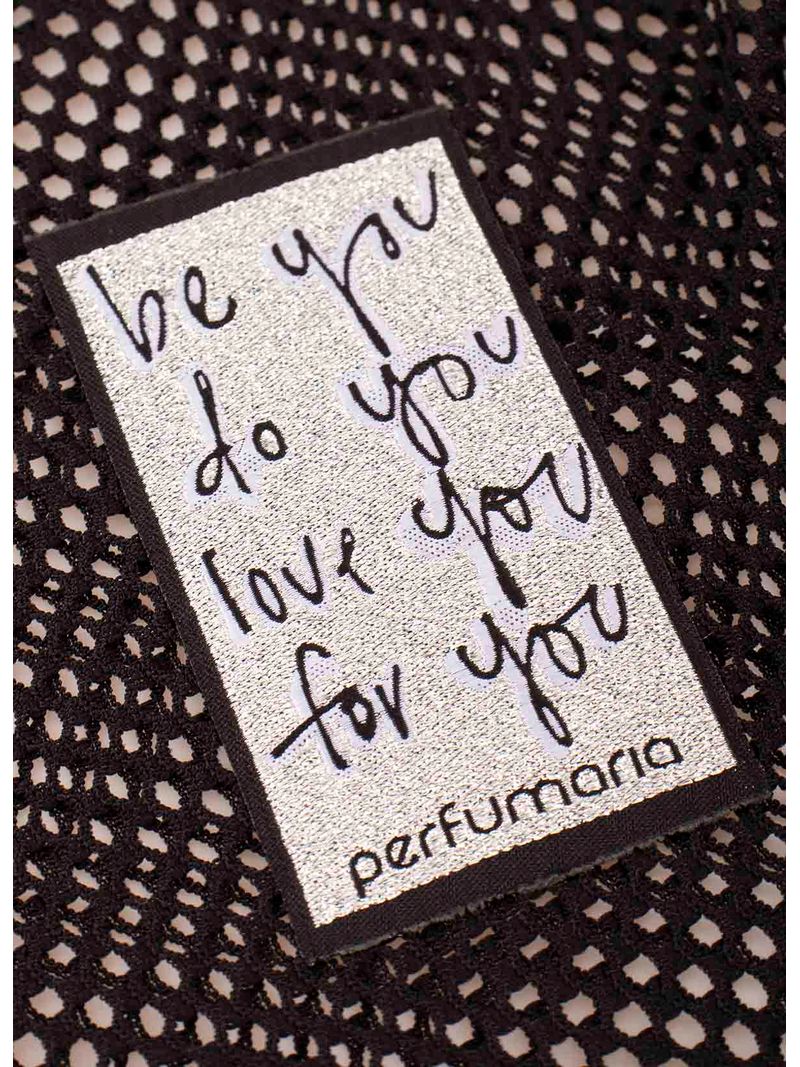 be you
do you
love you
for you
perfumaria